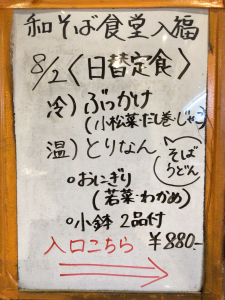 和そば食堂入福
8/2〈日替定食〉
冷）ぶっかけ
（小松菜・だし巻・じゃこ）
温）とりなん
そば
うどん
○おにぎり
（若菜・わかめ）
○小鉢 2品付
入口こちら ¥880-